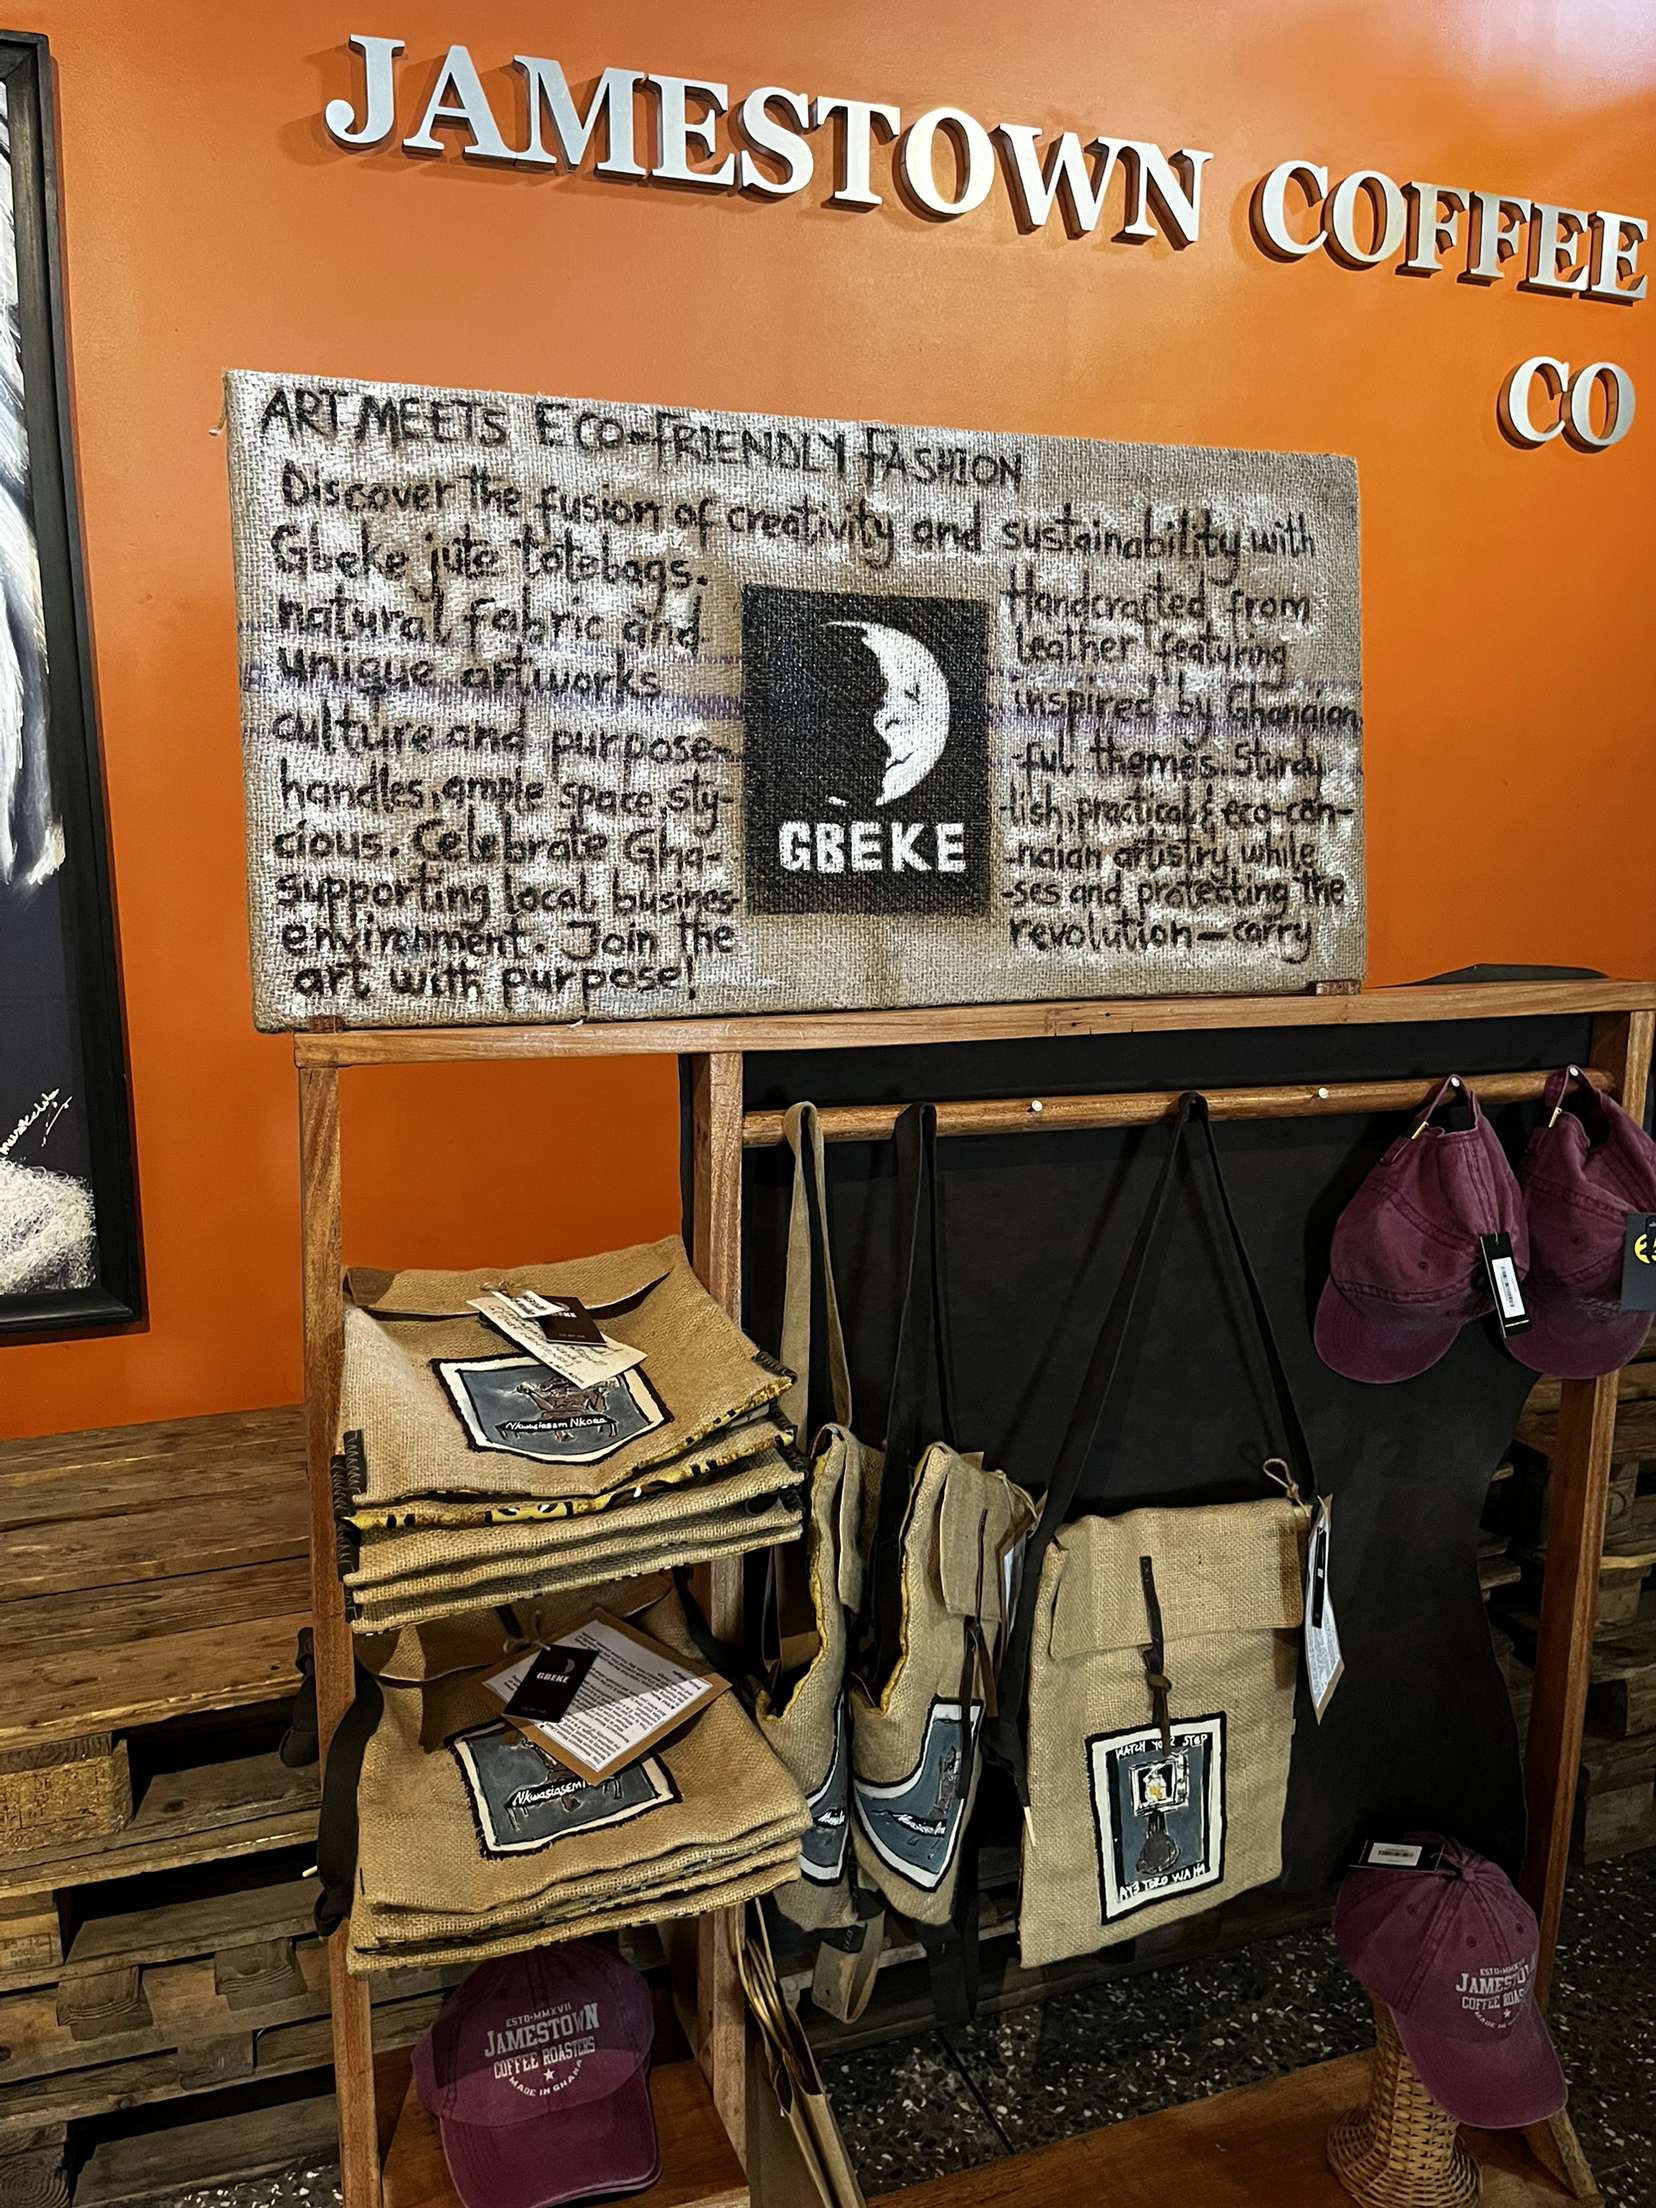 JAMESTOWN COFFEE
CO
ART MEETS ECO-FRIENDLY FASHION
Discover the fusion of creativity and sustainability with
Gbeke jute totebags. Handcrafted from
natural fabric and leather featuring
unique artworks inspired by Ghanaian
culture and purpose- -ful themes. Sturdy
handles, ample space, sty- -lish, practical & eco-con-
cious. Celebrate Gha- -naian artistry while
supporting local busines- -ses and protecting the
environment. Join the revolution — carry
art with purpose!
GBEKE
Nkwasiasem Nkoaa
GBEKE
NkwasiaSEM
WATCH YOUR STEP
AYE TORO WA HA
ESTD-MMXVII
JAMESTOWN
COFFEE ROASTERS
MADE IN GHANA
ESTD-MMXVII
JAMESTOWN
COFFEE ROAS
MADE IN